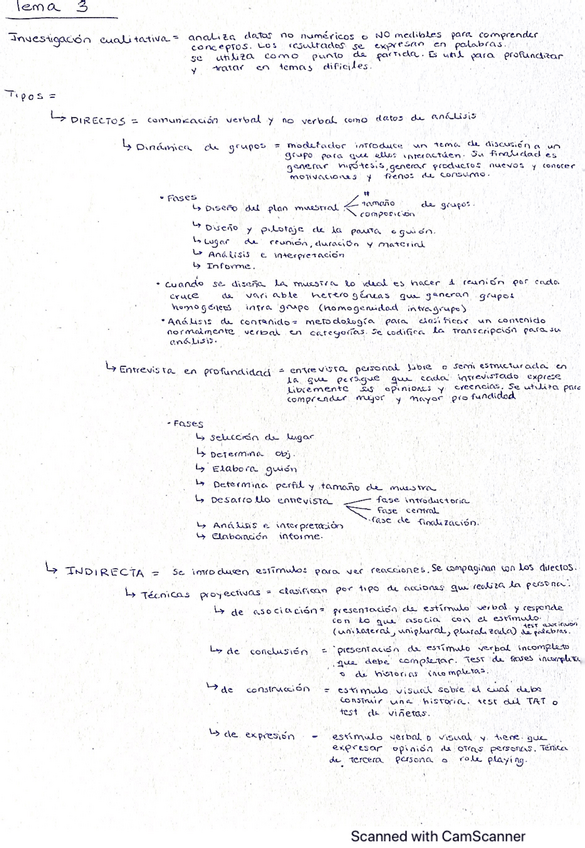 Tema 3
Investigación cualitativa = analiza datos no numéricos o NO medibles para comprender
conceptos. Los resultados se expresan en palabras.
se utiliza como punto de partida. Es util para profundizar
y tratar en temas dificiles.
Tipos =
↳ DIRECTOS = comunicación verbal y no verbal como datos de análisis
↳ Dinámica de grupos = modetador introduce un tema de discusión a un
grupo para que ellos interactúen. Su finalidad es
generar hipótesis, generar productos nuevos y conocer
motivaciones y frenos de consumo.
• Fases
↳ Diseño del plan muestral < nº tamaño composición de grupos.
↳ Diseño y pilotaje de la pauta o guión.
↳ Lugar de reunión, duración y material
↳ Análisis e interpretación
↳ Informe.
• cuando se diseña la muestra lo ideal es hacer 1 reunión por cada
cruce de variable heterogéneas que generan grupos
homogéneos intra grupo (homogeneidad intragrupo)
• Análisis de contenido = metodología para clasificar un contenido
normalmente verbal en categorías. Se codifica la transcripción para su
análisis.
↳ Entrevista en profundidad = entrevista personal libre o semi estructurada en
la que persigue que cada entrevistado exprese
libremente sus opiniones y creencias. Se utiliza para
comprender mejor y mayor profundidad
• Fases
↳ selección de lugar
↳ Determina obj.
↳ Elabora guión
↳ Determina perfil y tamaño de muestra
↳ Desarrollo entrevista < fase introductoria
fase central
fase de finalización.
↳ Análisis e interpretación
↳ Elaboración informe.
↳ INDIRECTA = se introducen estímulos para ver reacciones. Se compaginan con los directos.
↳ Técnicas proyectivas = clasifican por tipo de acciones que realiza la persona.
↳ de asociación = presentación de estímulo verbal y responde
con lo que asocia con el estímulo.
(unilateral, uniplural, pluralizada) test asociación de palabras.
↳ de conclusión = presentación de estímulo verbal incompleto
que debe completar. Test de frases incompleta
o de historias incompletas.
↳ de construcción = estímulo visual sobre el cual debo
construir una historia. test del TAT o
test de viñetas.
↳ de expresión = estímulo verbal o visual y tiene que
expresar opinión de otras personas. Técnica
de tercera persona o role playing.
Scanned with CamScanner